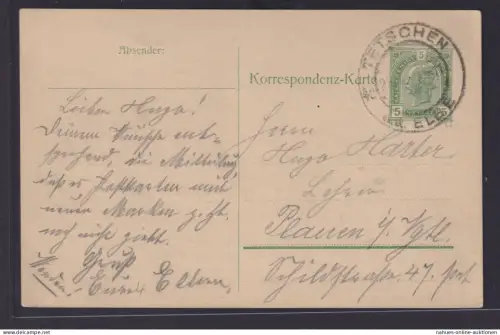 Absender:
Korrespondenz-Karte
TETSCHEN
ELBE
5
5
Lieber Hugo!
Deinem Wunsche ent-
sprechend, die Mitteilung
daß es Postkarten mit
neuen Marken
noch nicht giebt.
Gruß
Eure Eltern.
Wenden!
Herrn
Hugo Harter
Lehrer
Plauen i/ Vgtl.
Schildstraße 47. part